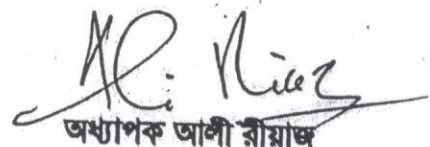 Ali Riaz
অধ্যাপক আলী রীয়াজ